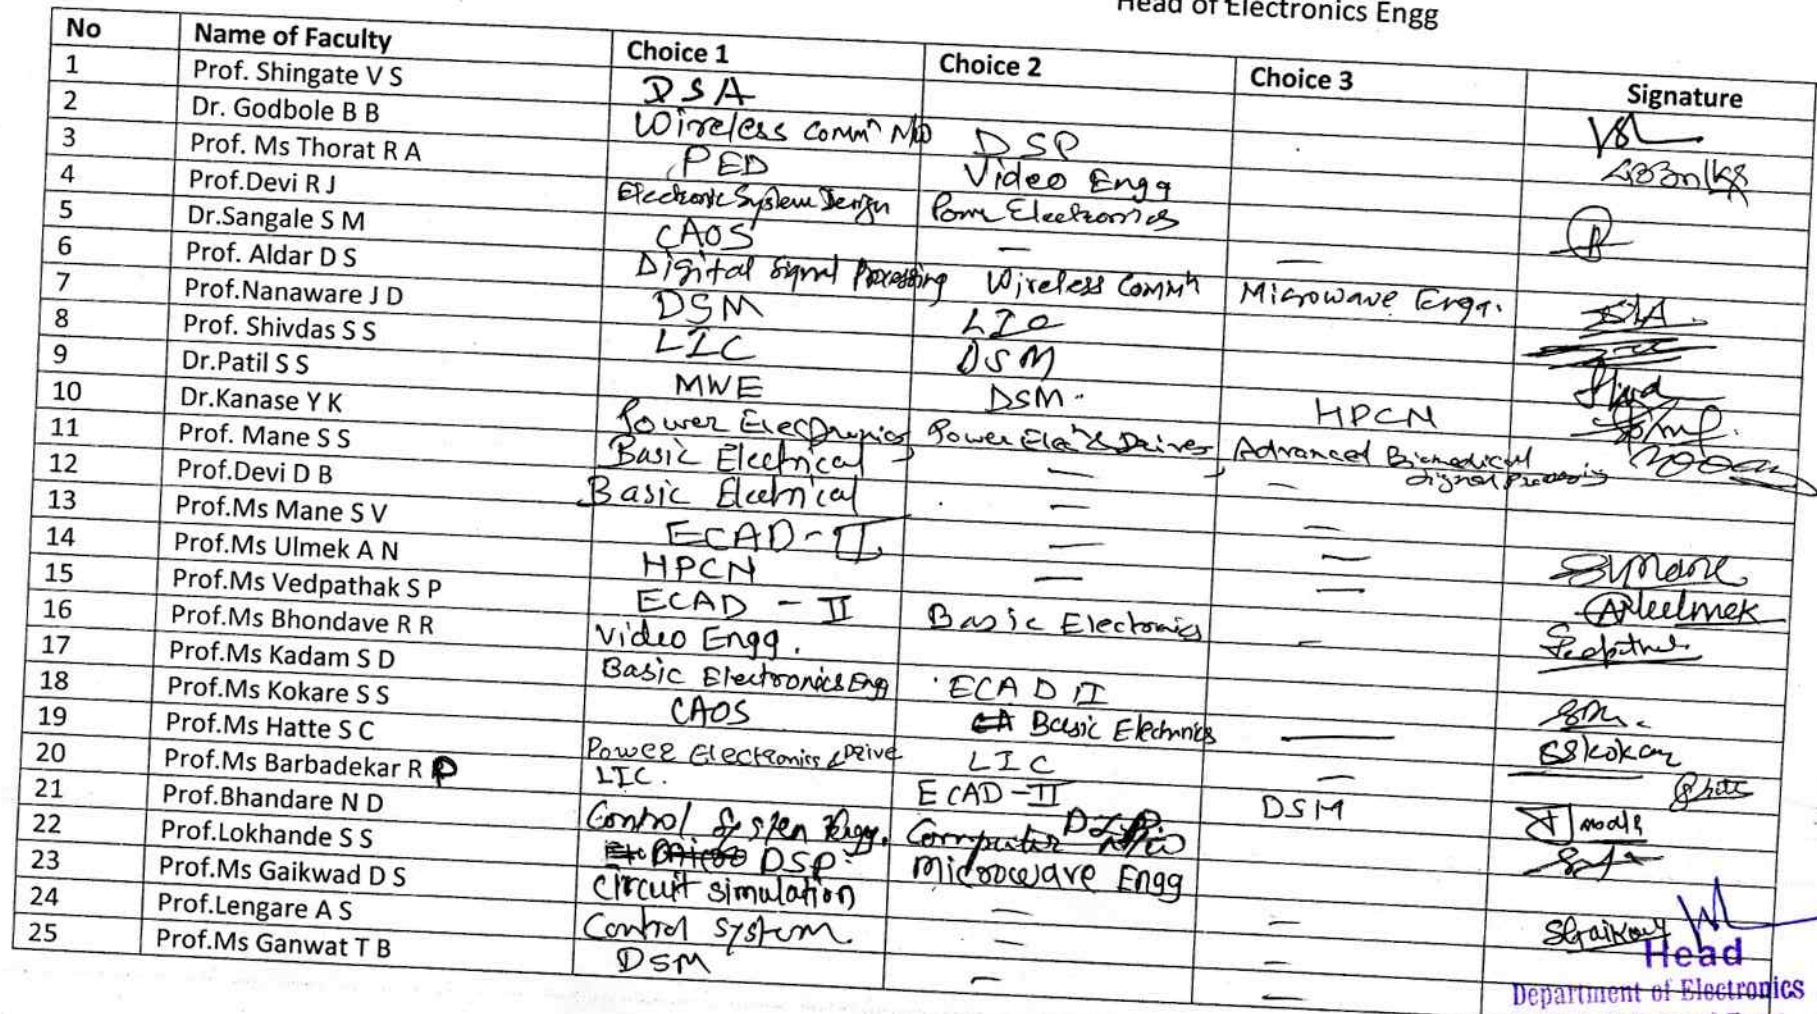 Head of Electronics Engg
No Name of Faculty Choice 1 Choice 2 Choice 3 Signature
1 Prof. Shingate V S DSA
2 Dr. Godbole B B Wireless Commn N/w DSP
3 Prof. Ms Thorat R A PED Video Engg
4 Prof.Devi R J Electronic System Design Power Electronics
5 Dr.Sangale S M CAOS — —
6 Prof. Aldar D S Digital Signal Processing Wireless Commn Microwave Engg.
7 Prof.Nanaware J D DSM LIC
8 Prof. Shivdas S S LIC DSM
9 Dr.Patil S S MWE DSM HPCN
10 Dr.Kanase Y K Power Electronics, Power Elecn & Drives, Advanced Biomedical Signal Processing
11 Prof. Mane S S Basic Electrical — —
12 Prof.Devi D B Basic Electrical — —
13 Prof.Ms Mane S V ECAD-II — — SVMane
14 Prof.Ms Ulmek A N HPCN — — Ulmek
15 Prof.Ms Vedpathak S P ECAD - II Basic Electronics —
16 Prof.Ms Bhondave R R Video Engg.
17 Prof.Ms Kadam S D Basic Electronics Engg ECAD II
18 Prof.Ms Kokare S S CAOS Basic Electronics — SSkokare
19 Prof.Ms Hatte S C Power Electronics & Drive LIC —
20 Prof.Ms Barbadekar R P LIC. ECAD-II DSM
21 Prof.Bhandare N D Control System Engg. Computer N/w
22 Prof.Lokhande S S DSP Microwave Engg
23 Prof.Ms Gaikwad D S Circuit simulation — —
24 Prof.Lengare A S Control System. — —
25 Prof.Ms Ganwat T B DSM — —
Head
Department of Electronics